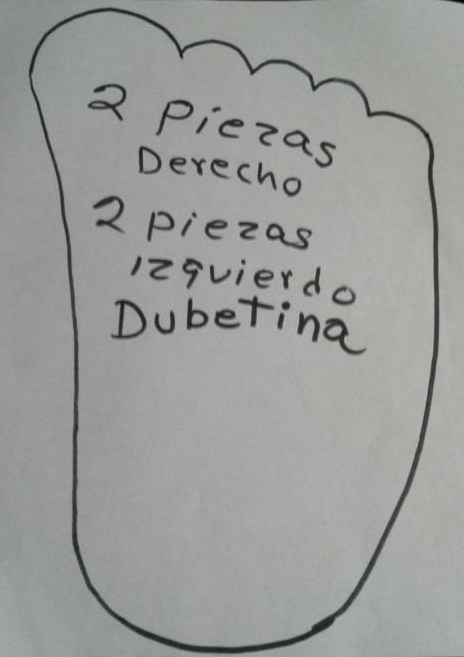 2 Piezas
Derecho
2 piezas
Izquierdo
Dubetina